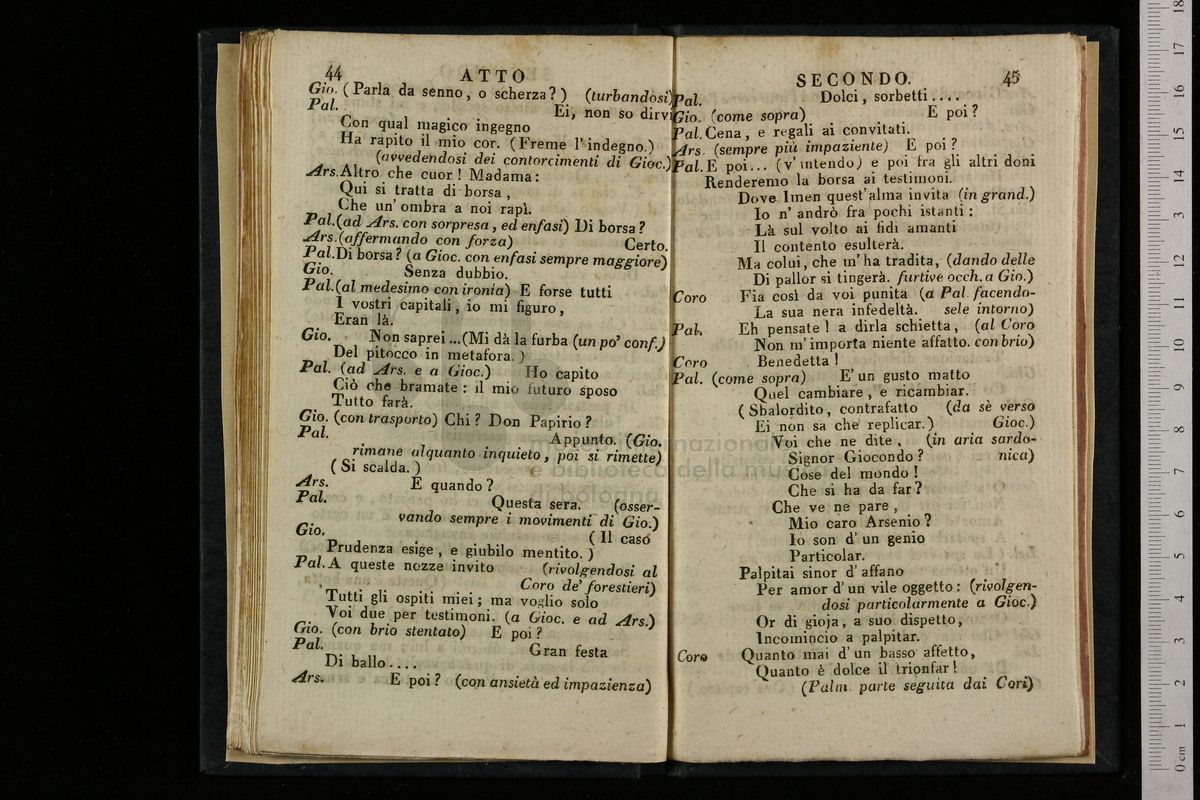 44 ATTO
Gio. (Parla da senno, o scherza?) (turbandosi)
Pal. Ei, non so dirvi
Con qual magico ingegno
Ha rapito il mio cor. (Freme l'indegno.)
(avvedendosi dei contorcimenti di Gioc.)
Ars. Altro che cuor! Madama:
Qui si tratta di borsa,
Che un' ombra a noi rapì.
Pal. (ad Ars. con sorpresa, ed enfasi) Di borsa?
Ars. (affermando con forza) Certo.
Pal. Di borsa? (a Gioc. con enfasi sempre maggiore)
Gio. Senza dubbio.
Pal. (al medesimo con ironia) E forse tutti
I vostri capitali, io mi figuro,
Eran là.
Gio. Non saprei ... (Mi dà la furba (un po' conf.)
Del pitocco in metafora.)
Pal. (ad Ars. e a Gioc.) Ho capito
Ciò che bramate: il mio futuro sposo
Tutto farà.
Gio. (con trasporto) Chi? Don Papirio?
Pal. Appunto. (Gio.
rimane alquanto inquieto, poi si rimette)
(Si scalda.)
Ars. E quando?
Pal. Questa sera. (osser-
vando sempre i movimenti di Gio.)
Gio. (Il caso
Prudenza esige, e giubilo mentito.)
Pal. A queste nozze invito (rivolgendosi al
Coro de' forestieri)
Tutti gli ospiti miei; ma voglio solo
Voi due per testimoni. (a Gioc. e ad Ars.)
Gio. (con brio stentato) E poi?
Pal. Gran festa
Di ballo....
Ars. E poi? (con ansietà ed impazienza)
SECONDO. 45
Pal. Dolci, sorbetti....
Gio. (come sopra) E poi?
Pal. Cena, e regali ai convitati.
Ars. (sempre più impaziente) E poi?
Pal. E poi... (v' intendo) e poi fra gli altri doni
Renderemo la borsa ai testimoni.
Dove Imen quest' alma invita (in grand.)
Io n' andrò fra pochi istanti:
Là sul volto ai fidi amanti
Il contento esulterà.
Ma colui, che m' ha tradita, (dando delle
Di pallor si tingerà. furtive occh. a Gio.)
Coro Fia così da voi punita (a Pal. facendo-
La sua nera infedeltà. sele intorno)
Pal. Eh pensate! a dirla schietta, (al Coro
Non m' importa niente affatto. con brio)
Coro Benedetta!
Pal. (come sopra) E' un gusto matto
Quel cambiare, e ricambiar.
(Sbalordito, contrafatto (da sè verso
Ei non sa che replicar.) Gioc.)
Voi che ne dite, (in aria sardo-
Signor Giocondo? nica)
Cose del mondo!
Che si ha da far?
Che ve ne pare,
Mio caro Arsenio?
Io son d' un genio
Particolar.
Palpitai sinor d' affano
Per amor d' un vile oggetto: (rivolgen-
dosi particolarmente a Gioc.)
Or di gioja, a suo dispetto,
Incomincio a palpitar.
Coro Quanto mai d' un basso affetto,
Quanto è dolce il trionfar!
(Palm. parte seguita dai Cori)